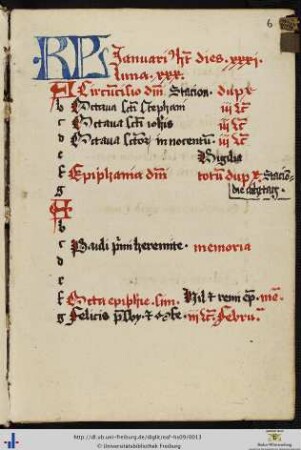 6
Januari' ht dies .xxxi.
luna .xxx.
A Circūcisio dm̄ Stacion. dup
b Octaua sc̄i stephani iij lc̄
c Octaua sc̄i ioh̄is iij lc̄
d Octaua sc̄or in nocentū. iij lc̄
e Vigilia
f Epiphania dm̄ totū dup Stacio
g
A
b
c
d Pauli p̄mi heremite. memoria
e
f Octa epiphīe. Hil et rem ep̄. me.
g Felicis p̄sby. iij lc̄. Februr
http://dl.ub.uni-freiburg.de/diglit/naf-hs09/0013
© Universitätsbibliothek Freiburg
Baden-Württemberg